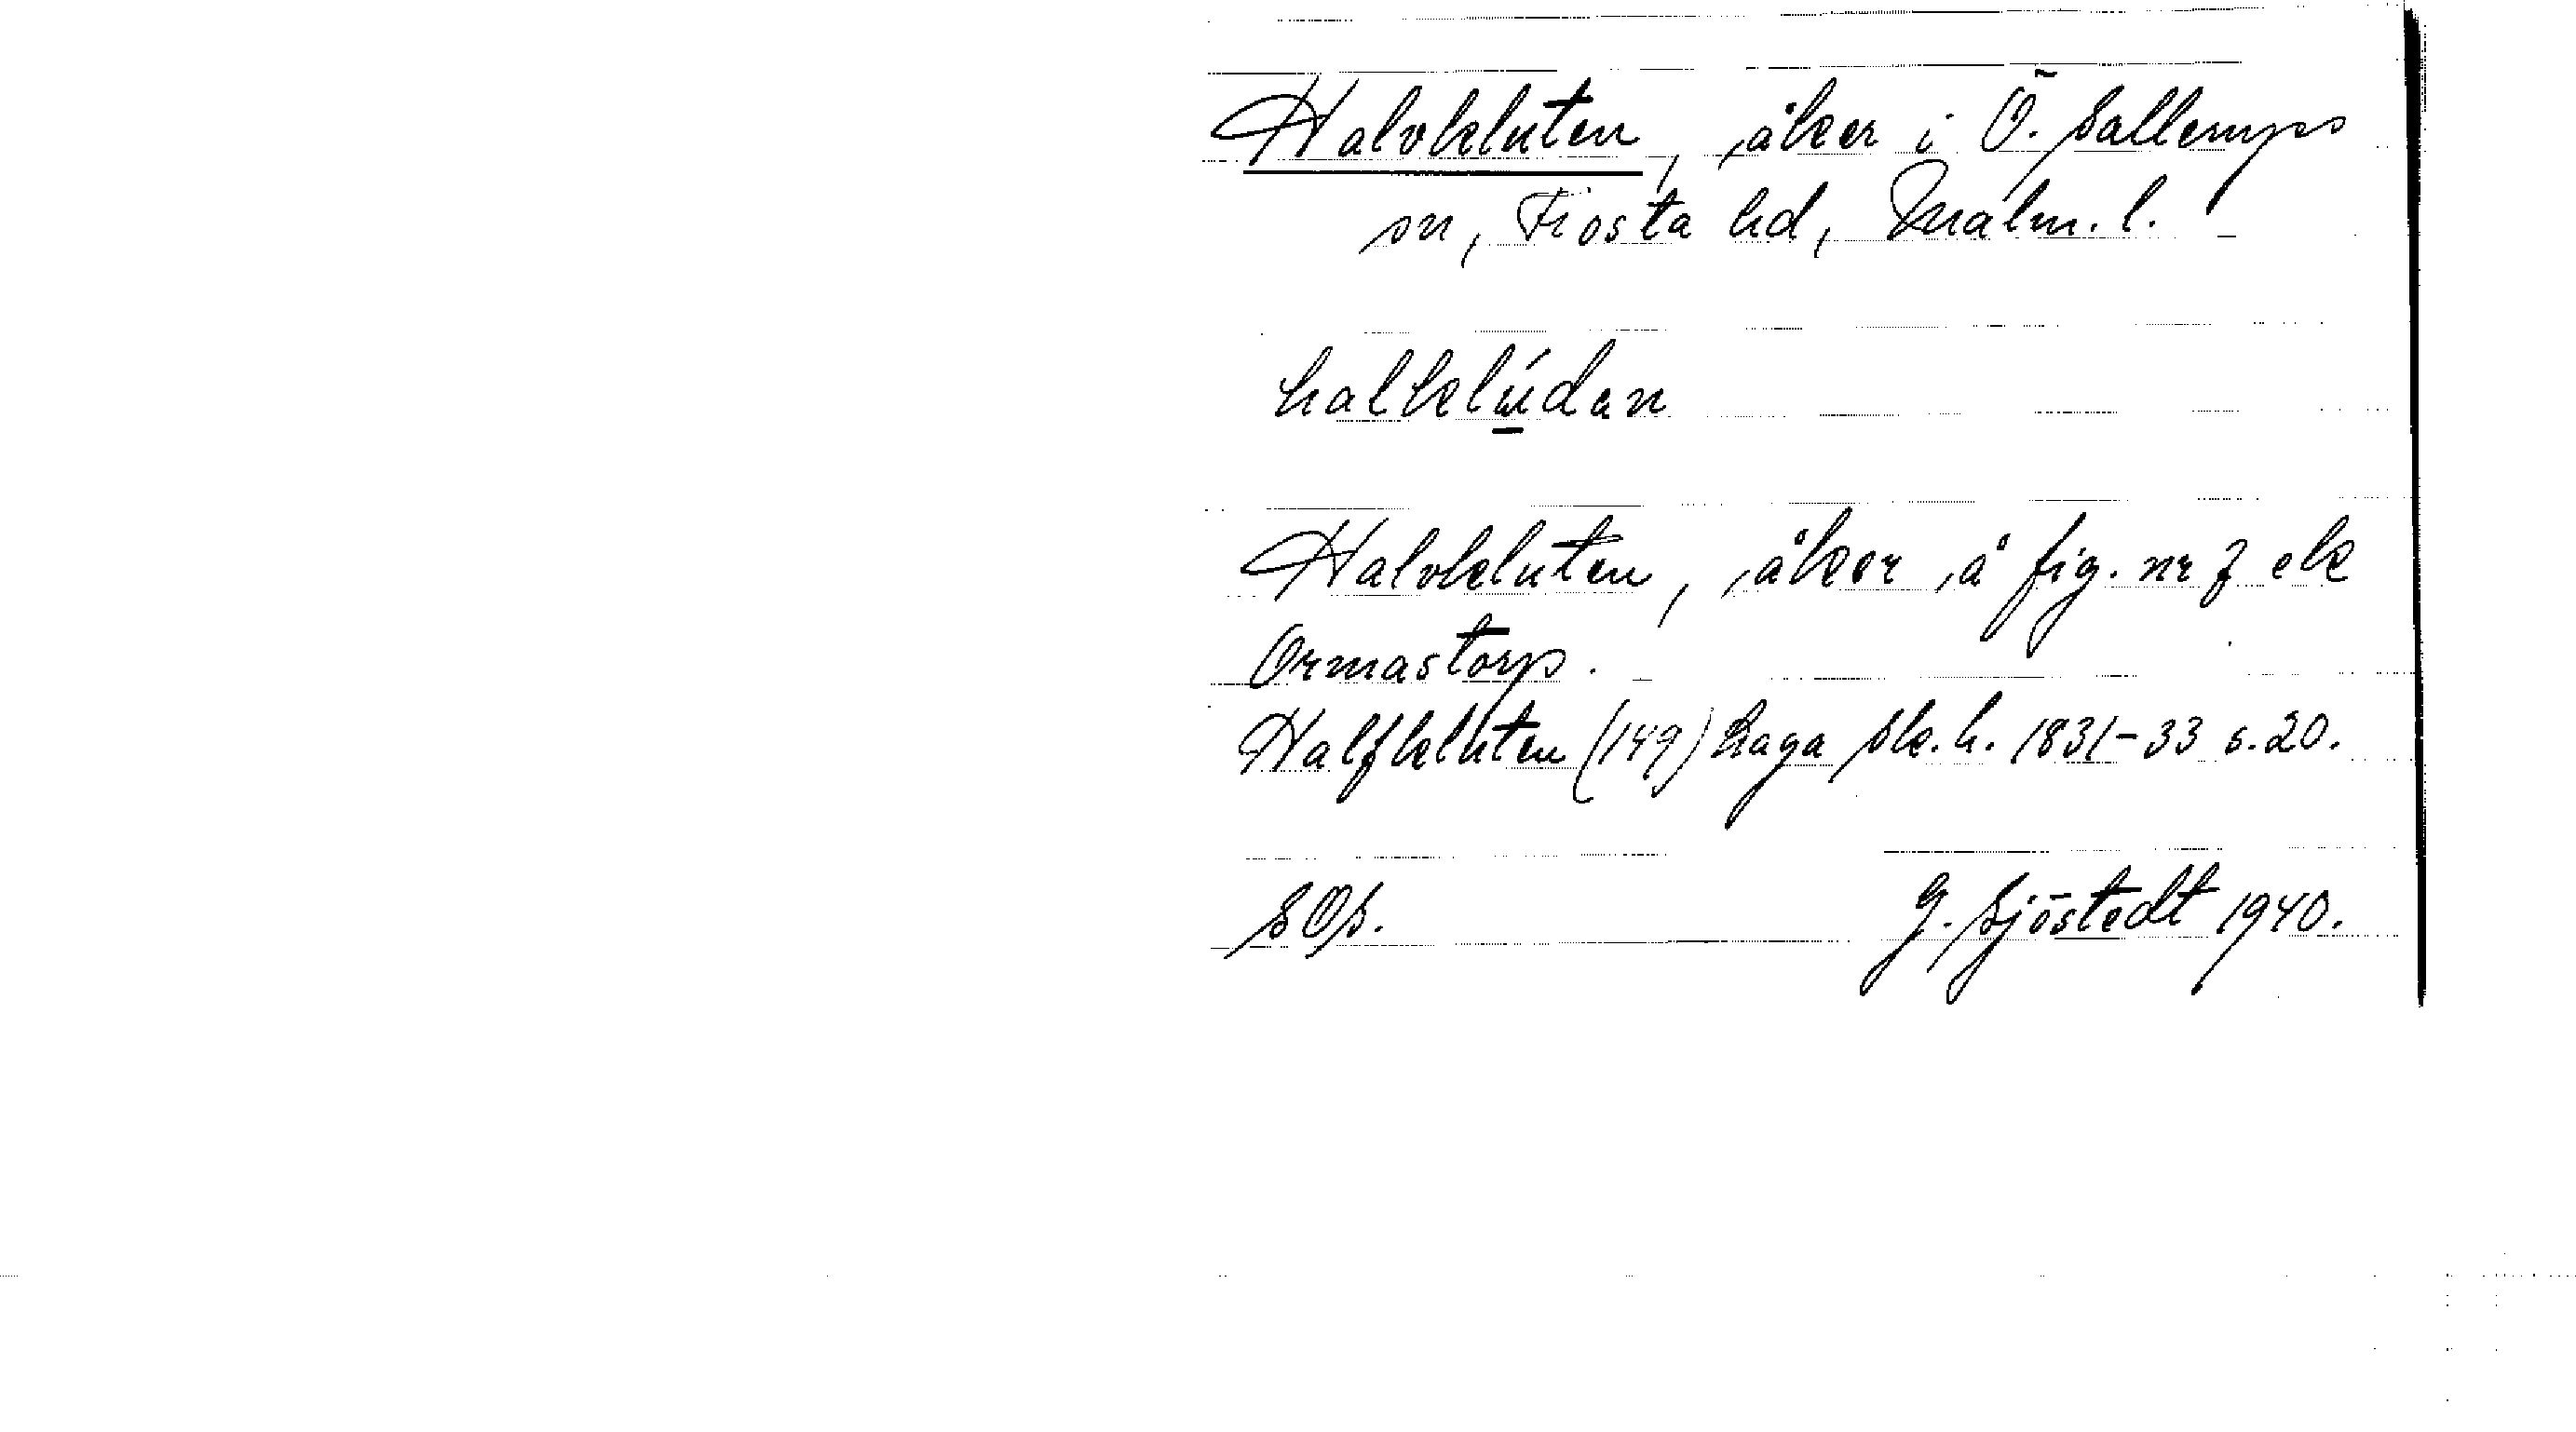 Halvkluten, åker i Ö. Sallerups
sn, Frosta hd, Malm. l.
halklúdan
Halvkluten, åker å fig. nr 7 ek
Ormastorp.
Halfkluten (149) Laga sk. h. 1831-33 s. 20.
SOS. G. Sjöstedt 1940.